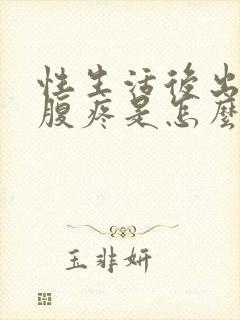 性生活後出
腹疼是怎麼
玉非妍